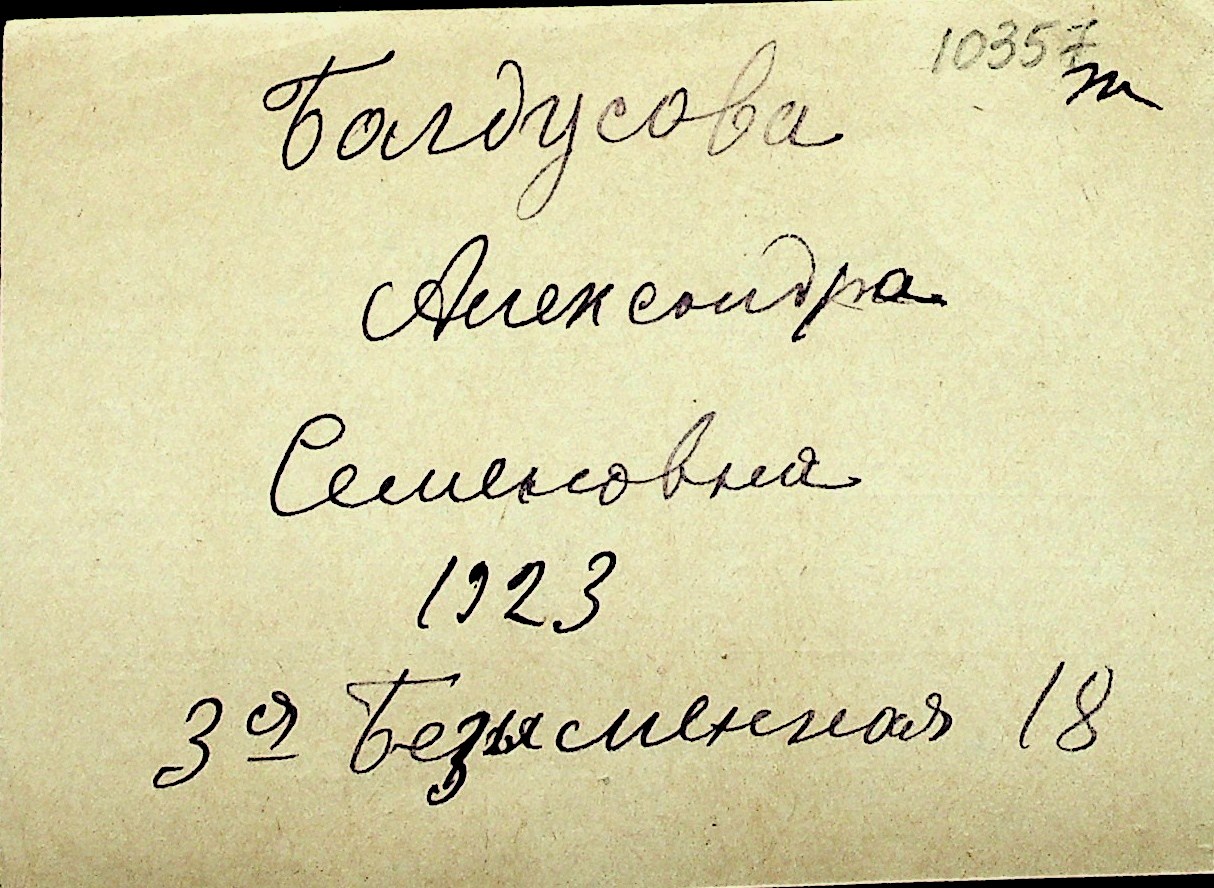 10357
т
Балдусова
Александра
Семеновна
1923
3я Безысменная 18